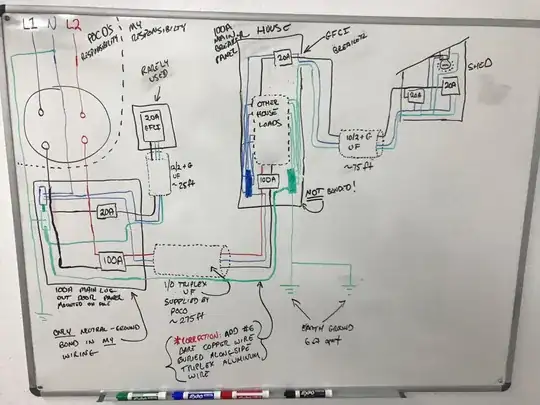 L1 N L2
POCO'S
RESPONSIBILITY
MY
RESPONSIBILITY
RARELY
USED
20A
GFCI
12/2+G
UF
~25ft
20A
100A
100A MAIN LUG
OUT DOOR PANEL
MOUNTED ON POLE
ONLY NEUTRAL-GROUND
BOND IN MY
WIRING
100A
MAIN
BREAKER
PANEL
HOUSE
20A
GFCI
BREAKER
OTHER
HOUSE
LOADS
100A
NOT BONDED!
1/0 TRIPLEX
UF
SUPPLIED BY
POCO
~275ft
*CORRECTION: ADD #6
BARE COPPER WIRE
BURIED ALONG-SIDE
TRIPLEX ALUMINUM
WIRE
EARTH GROUND
6' apart
10/2+G
UF
~75ft
SHED
20A
20A
EXPO